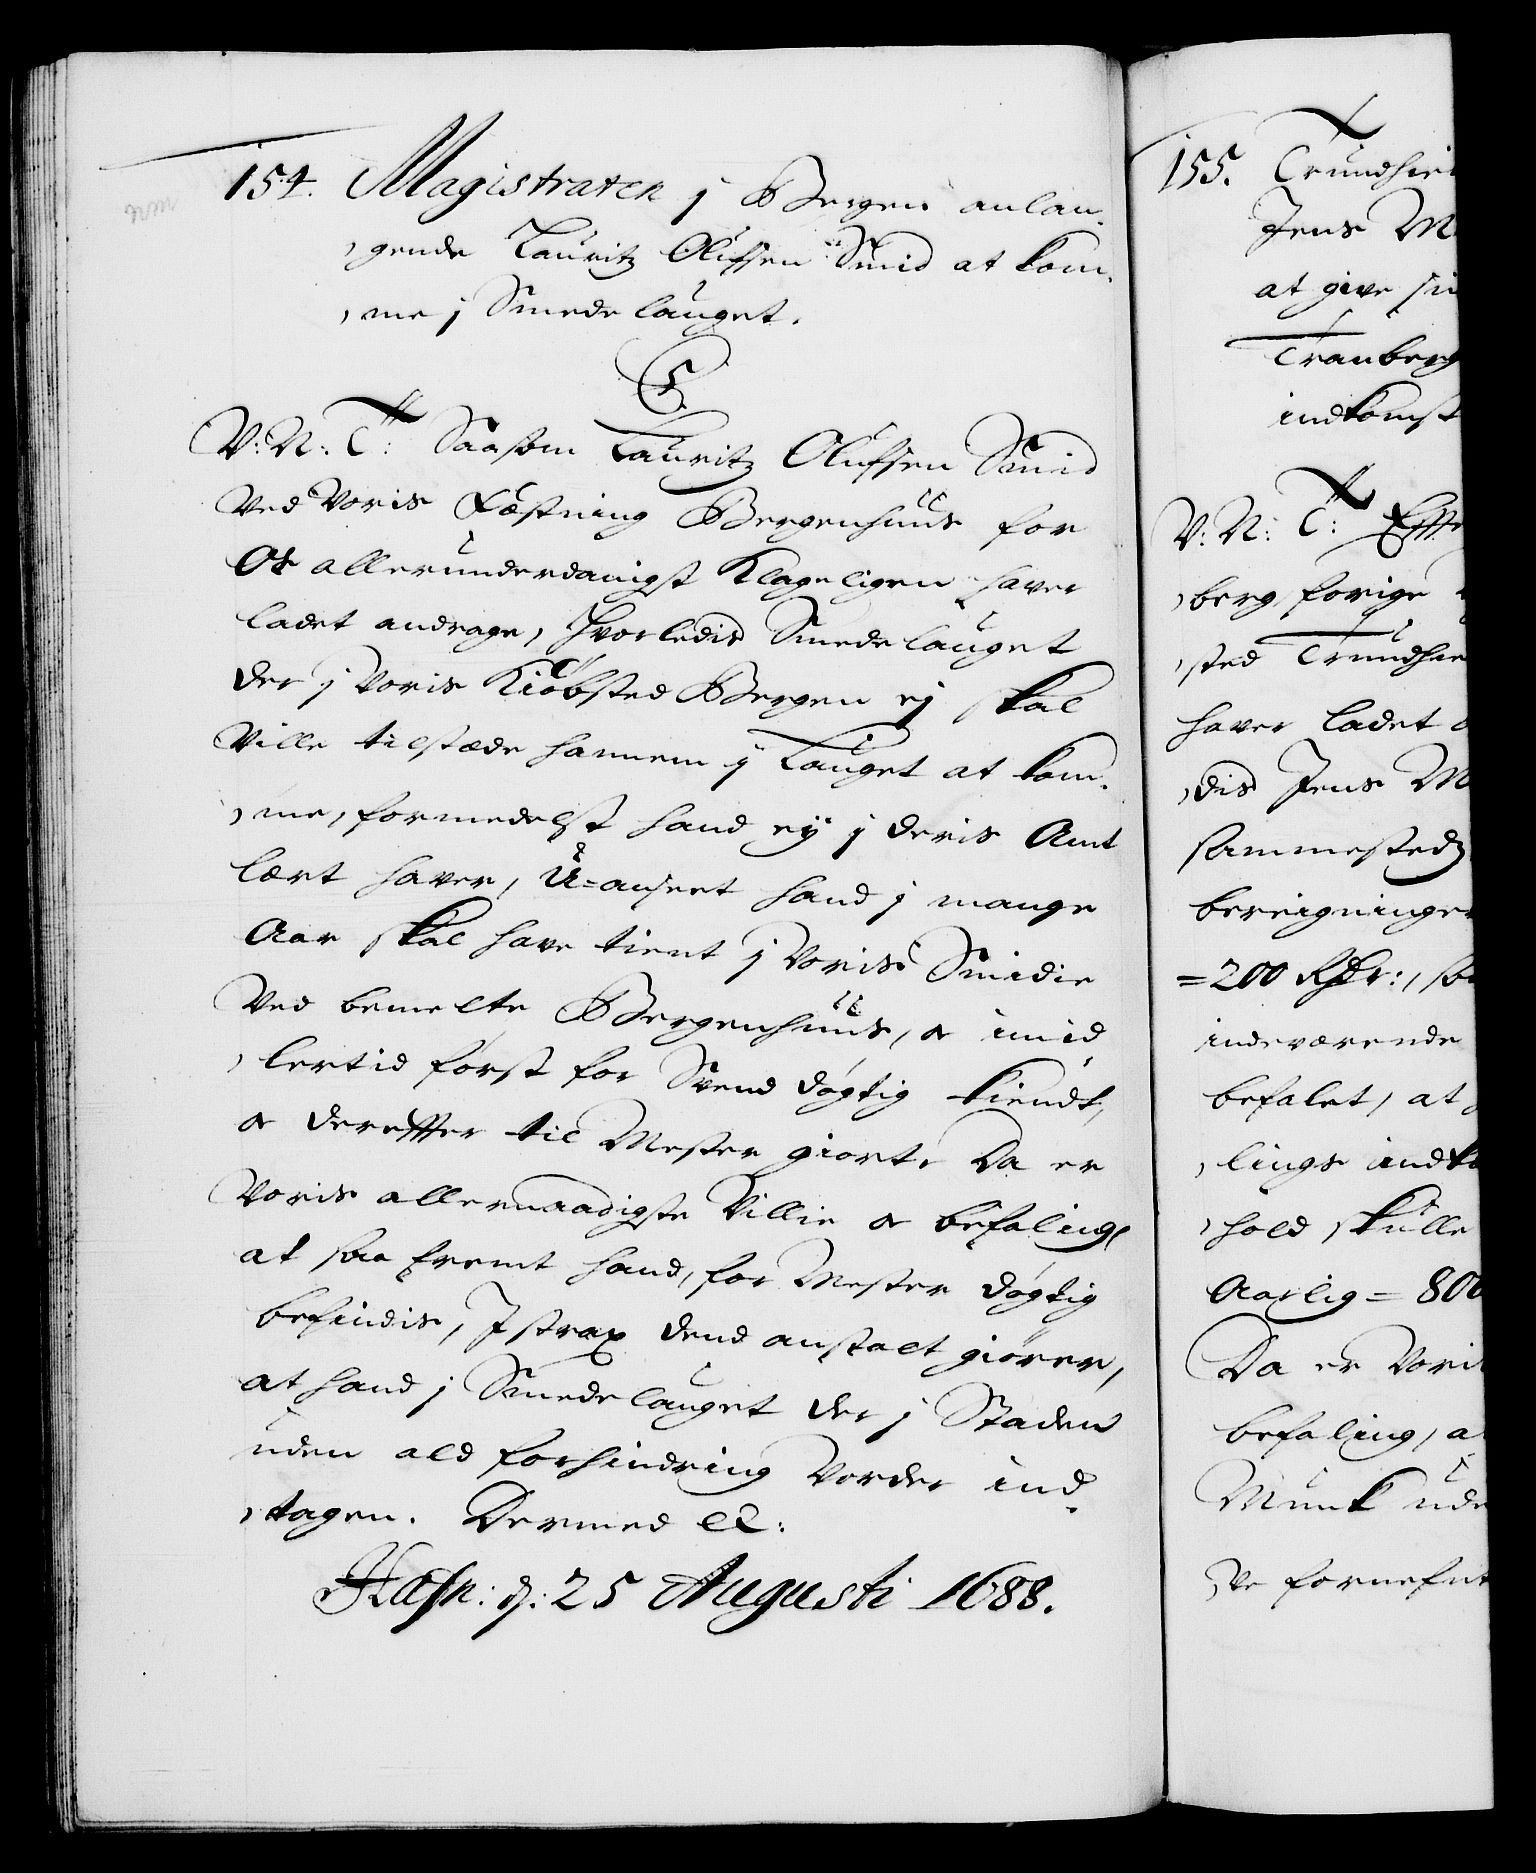 154. Magistraten j Bergen anlan¬
gende Lauritz Olufsen Smid at kom¬
me j Smedelauget.
C5.
V: N: T: Saasom Lauritz Olufsen Smid
Ved Voris Fæstning Bergenhuus for
Os allerunderdanigst Klageligen haver
ladet andrage, hvorledis Smedelauget
der j Voris Kiøbsted Bergen ej skal
Ville tilstæde hannem j Lauget at kom¬
me, formedelst hand ey j deris Amt
lært haver, U=anseet hand j mange
Aar skal have tient j Voris Smidie
Ved bemelte Bergenhuus, oc imid
lertid først for Svend døgtig kiendt,
oc dereffter til Mester giort. Da er
Voris allernaadigste Villie oc befaling,
at saa fremt hand, for Mester døgtig
befindis, I strax dend anstalt giører,
at hand j Smedelauget der j Staden
uden ald forhindring Vorder ind¬
tagen. Dermed etc:
Hafn: d: 25 Augusti 1688.
155. Trundhie
Jens M
at give si
Tranberg
indkomst
V: N: T: Effte
berg forige
sted Trundhie
haver ladet
dis Jens M
sammestedz
bereigninger
=200 Rdr:, sa
indeværende
befalet, at
lings indko
hold skulle
Aarlig = 800
Da er Vori
befaling, a
Munk ude
ve fornefnt